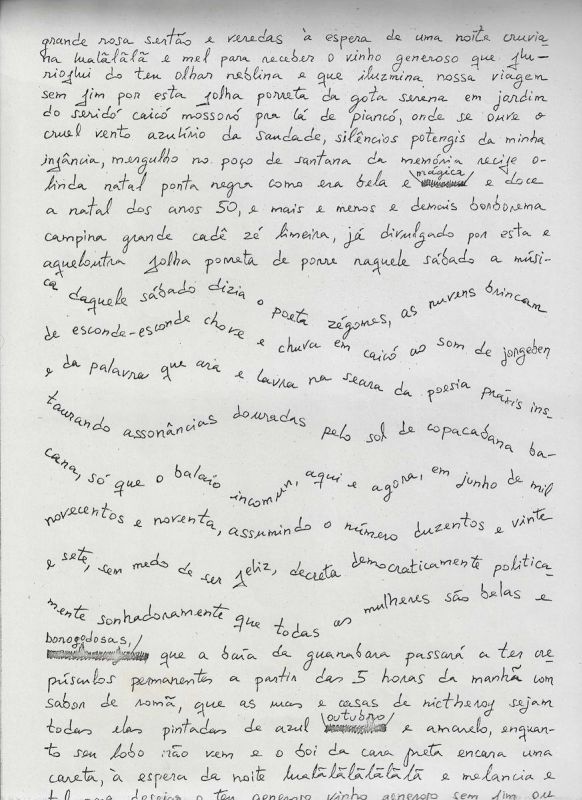 grande rosa sertão e veredas à espera de uma noite cruvia-
na lualãlãlã e mel para receber o vinho generoso que flu-
do teu olhar neblina e que iluzmina nossa viagem
sem fim por esta folha porreta da gota serena em jardim
do seridó caicó mossoró pra lá de piancó, onde se ouve o
cruel vento azulírio da saudade, silêncios potengis da minha
infância, mergulho no poço de santana da memória recife o-
linda natal ponta negra como era bela e mágica e doce
a natal dos anos 50, e mais e menos e demais borborema
campina grande cadê zé limeira, já divulgado por esta e
aqueloutra folha porreta de porre naquele sábado a músi-
ca daquele sábado dizia o poeta zégomes, as nuvens brincam
de esconde-esconde chove e chuva em caicó ao som de jorgeben
e da palavra que ara e lavra na seara da poesia práxis ins-
taurando assonâncias douradas pelo sol de copacabana ba-
cana, só que o balaio incomum, aqui e agora, em junho de mil
novecentos e noventa, assumindo o número duzentos e vinte
e sete, sem medo de ser feliz, decreta democraticamente política-
mente sonhadoramente que todas as mulheres são belas e
borogodosas, que a baía da guanabara passará a ter cre-
púsculos permanentes a partir das 5 horas da manhã com
sabor de romã, que as ruas e casas de nictheroy sejam
todas elas pintadas de azul outubro e amarelo, enquan-
to seu lobo não vem e o boi da cara preta encara uma
careta, à espera da noite lualãlãlãlãlãlã e melancia e
o teu generoso vinho generoso sem fim ou